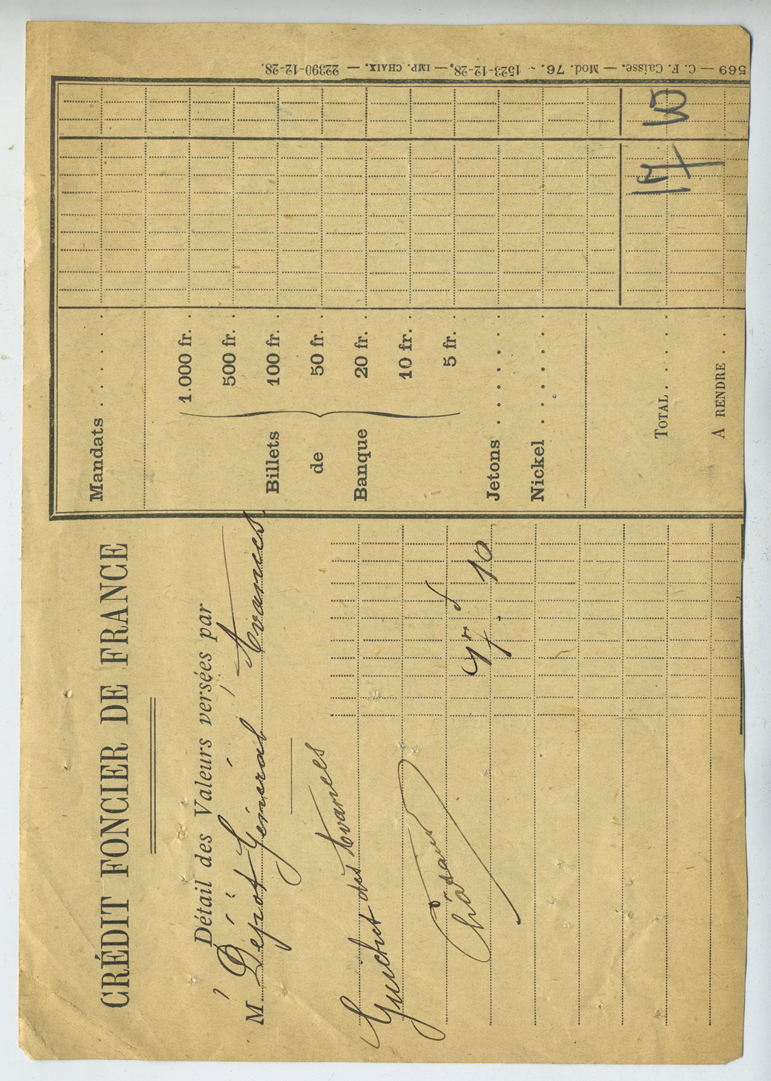 CRÉDIT FONCIER DE FRANCE
Détail des Valeurs versées par
M Dépôt Général Avances
Guichet des Avances
10
Mandats . . . . . .
Billets
de
Banque
1.000 fr. .
500 fr. .
100 fr. .
50 fr. .
20 fr. .
10 fr. .
5 fr. .
Jetons . . . . . . .
Nickel . . . . . .
TOTAL . . . .
A RENDRE . .
569 — C. F. Caisse. — Mod. 76. - 1523-12-28. — IMP. CHAIX. — 22390-12-28.